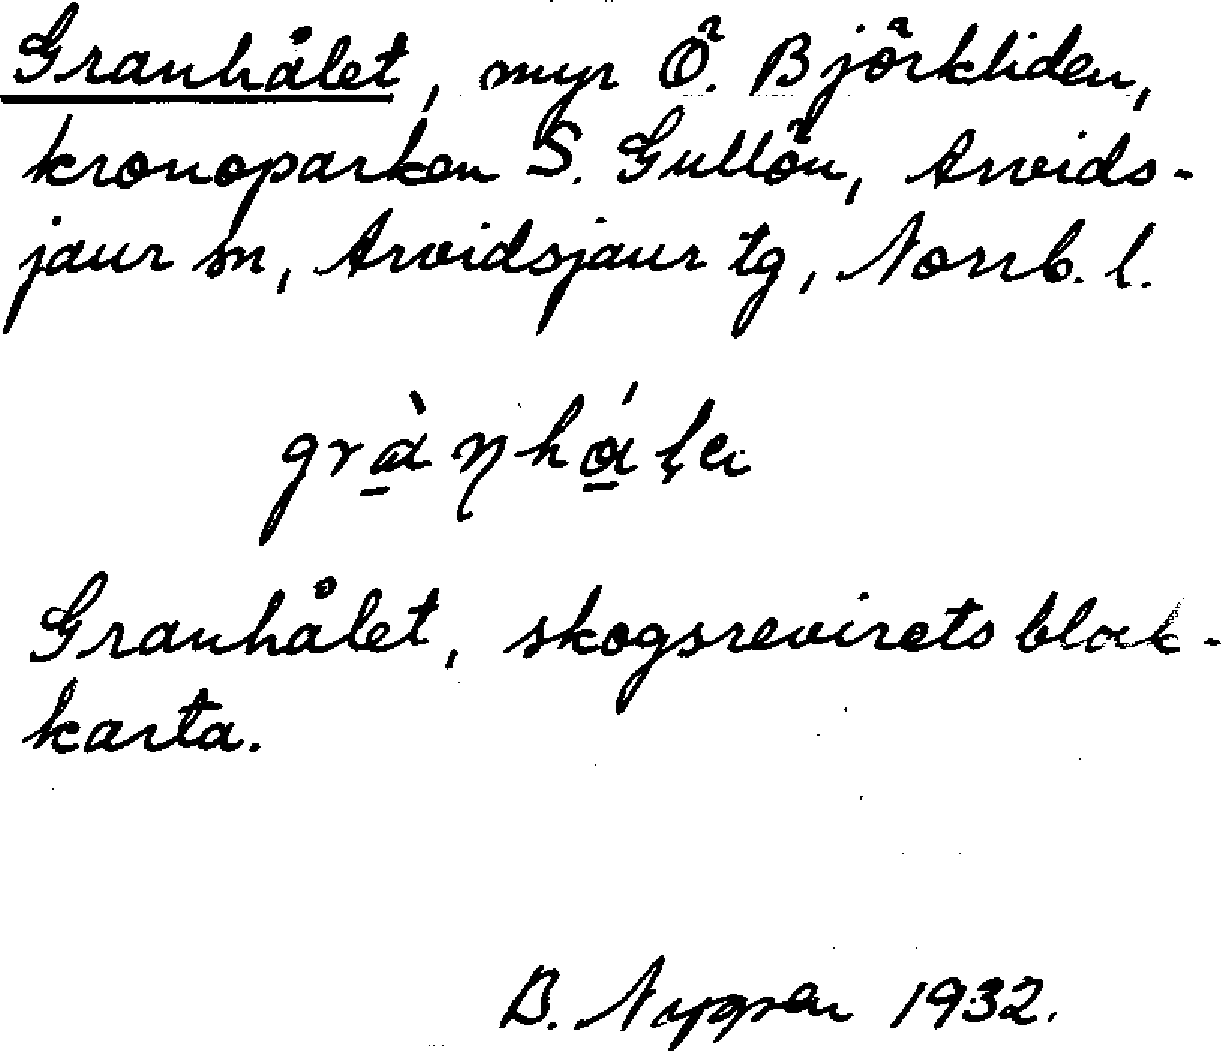 Granhålet, myr Ö. Björkliden,
kronoparken S. Gullön, Arvids-
jaur sn, Arvidsjaur tg, Norrb. l.
Granhålet, skogsrevirets blok-
karta.
B. 1932.